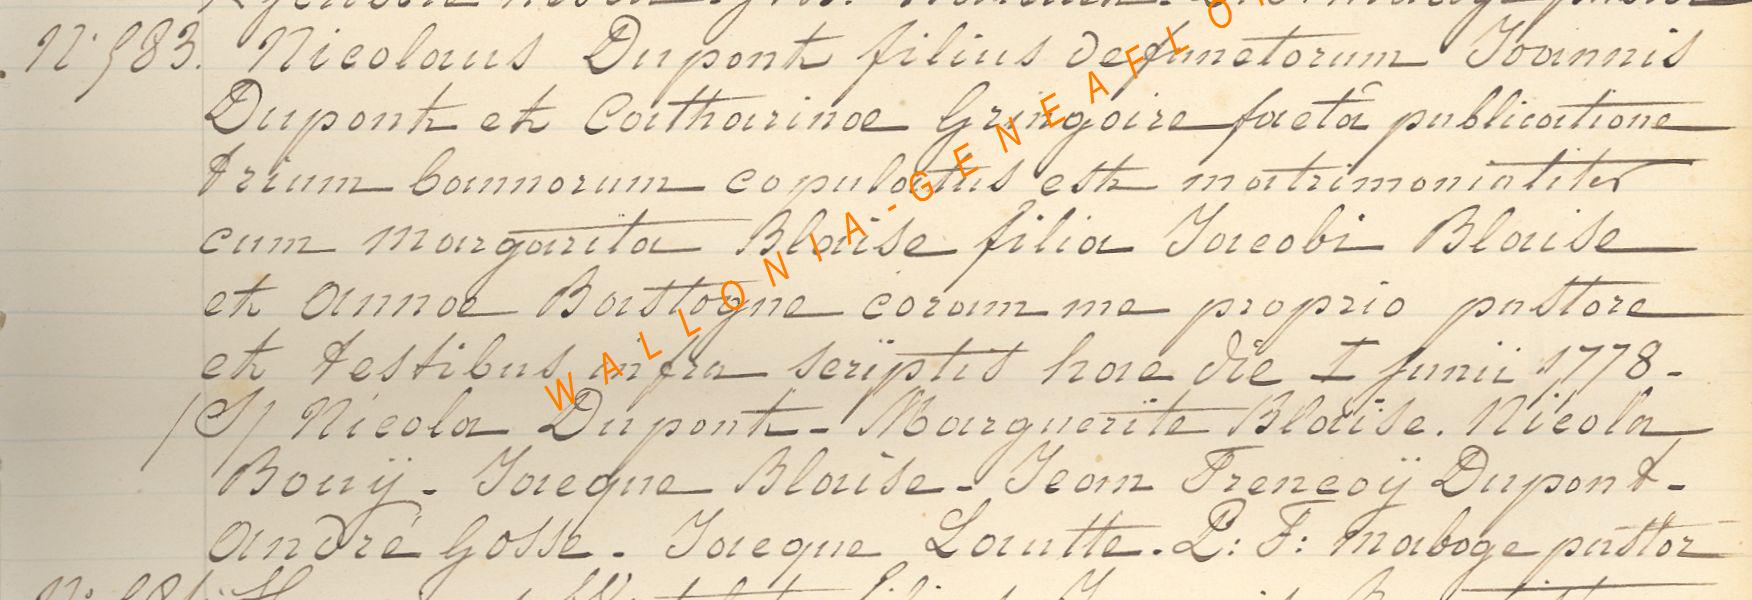 N° 983. Nicolaus Dupont filius defunctorum Joannis
Dupont et Catharinae Gringoire factâ publicatione
trium bannorum copulatus est matrimonialiter
cum Margarita Blaise filia Jacobi Blaise
et Annae Bastogne coram me proprio pastore
et testibus infra scriptis hac die I Junii 1778.
/S/ Nicola Dupont - Marguerite Blaise. Nicola
Bouÿ - Jacque Blaise - Jean Frencoÿ Dupont -
André Gosse - Jacque Lautte. P: F: Maboge pastor
WALLONIA-GENEAFLO